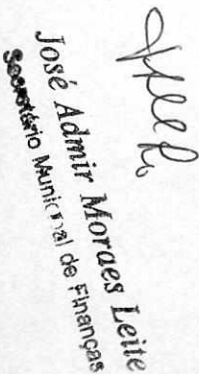 José Admir Moraes Leite
Secretário Municipal de Finanças